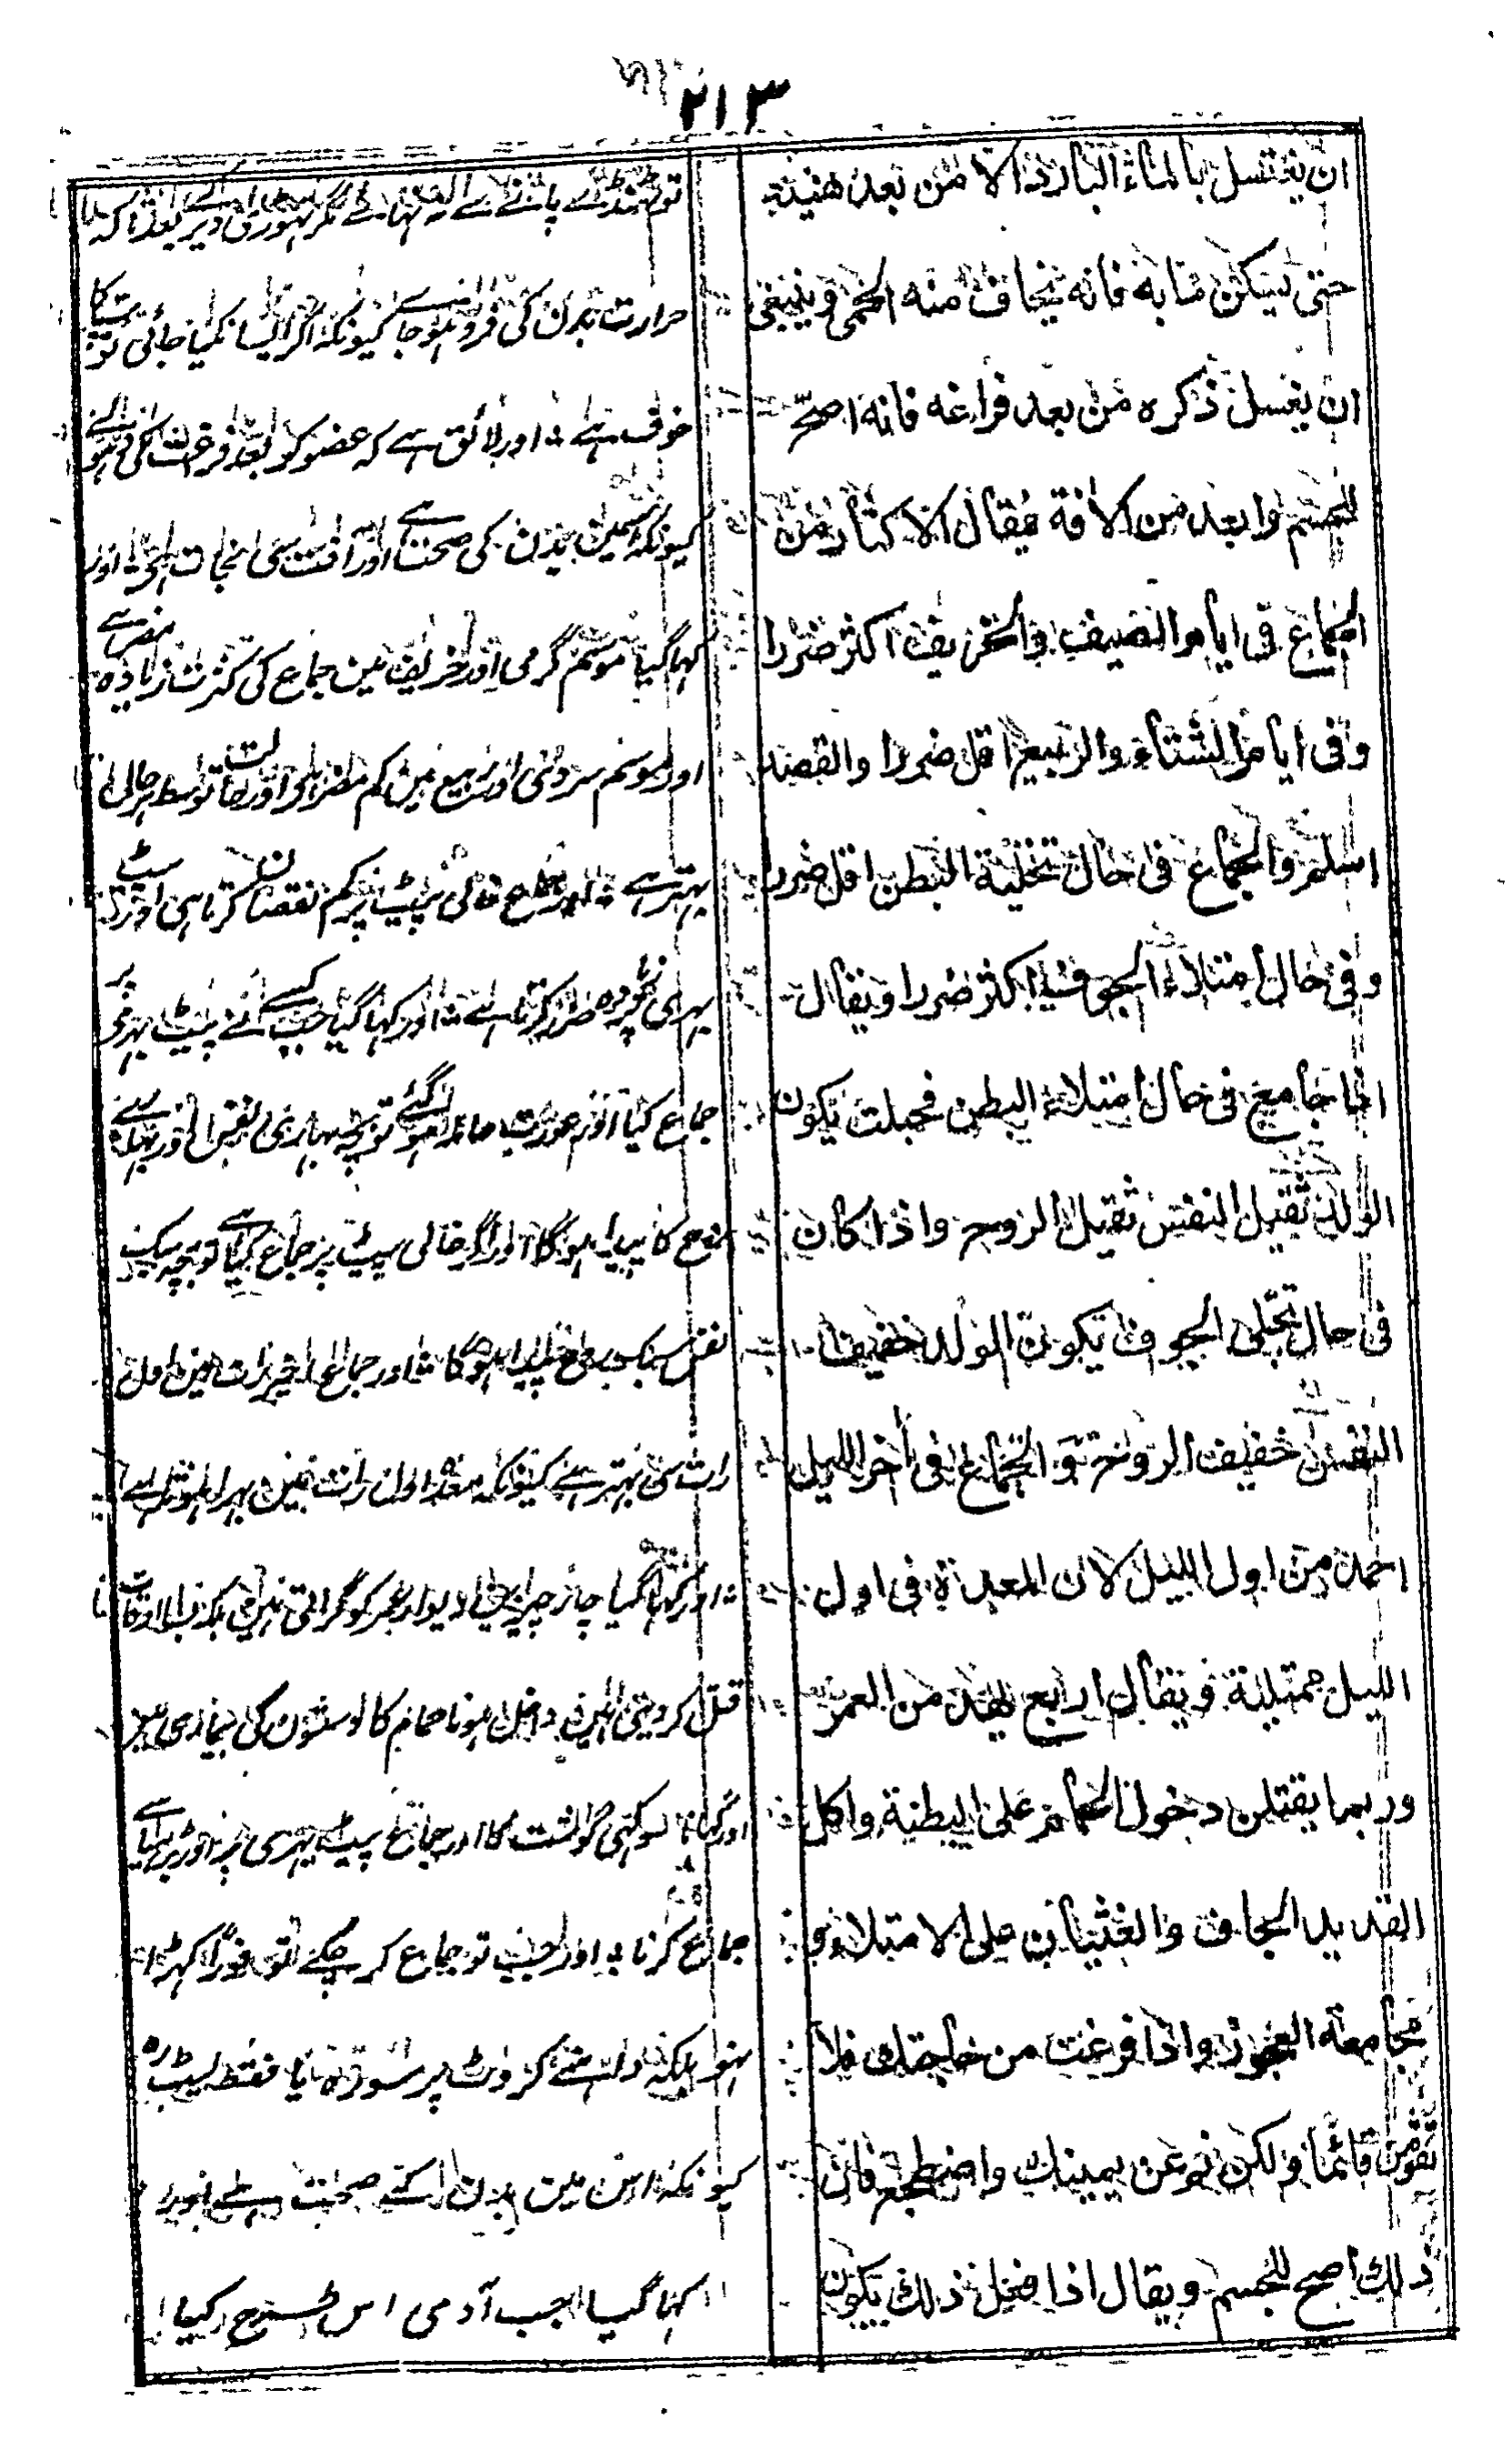 ٢١٣
ان يغتسل بالماء البارد الا من بعد هنيئة
حتى يسكن مابه فانه يخاف منه الحمى وينبغى
ان يغسل ذكره من بعد فراغه فانه اصح
للجسم وابعد من الافة فيقال الاكثار من
الجماع فى ايام الصيف والخريف اكثر ضررا
وفى ايام الشتاء والربيع اقل ضررا والقصد
اسلم والجماع فى حال تخلية البطن اقل ضررا
وفى حال امتلاء الجوف اكثر ضررا ويقال
اذا جامع فى حال امتلاء البطن فحبلت يكون
الولد ثقيل النفس ثقيل الروح واذا كان
فى حال تخلى الجوف يكون الولد خفيف
النفس خفيف الروح والجماع فى اخر الليل
احمد من اول الليل لان المعدة فى اول
الليل ممتلئة ويقال اربع يهد من العمر
وربما يقتلن دخول الحمام على البطنة واكل
القديد الجاف والغشيان على الامتلاء و
مجامعة العجوز واذا فرغت من حاجتك فلا
تقومن قائما ولكن نم عن يمينك واضطجع فان
ذلك اصح للجسم ويقال اذا فعل ذلك يكون
تو ٹھنڈے پانے سے نہ نہائے مگر تہوڑی دیر بعد تاکہ
حرارت بدن کی فرو ہوجا کیونکہ اگر ایسا نکیا جائی تو تپ کا
خوف ہے ؞ اور لائق ہے کہ عضو کو بعد فراغت کی دہو
کیونکہ اسمین بدن کی صحت ہے اور آفت سی نجات ہے ؞ اور
کہا گیا موسم گرمی اور خریف مین جماع کی کثرت زیادہ مضر ہے
اور موسم سردی اور ربیع مین کم مضر ہی اور توسط ہر حال
بہتر ہے ؞ اور جماع خالی پیٹ پر کم نقصان کرتا ہی اور
بہری پر زیادہ ضرر کرتا ہے ؞ اور کہا گیا جب کسے نے پیٹ بہری پر
جماع کیا اور عورت حاملہ ہو گئے تو بچہ بہاری نفس اور بہاری
روح کا پیدا ہوگا اور اگر خالی پیٹ پر جماع کیا ہے تو بچہ سبک
نفس سبک روح پیدا ہوگا ؞ اور جماع اخیر رات مین اول
رات سی بہتر ہے کیونکہ معدہ اول رات مین بہرا ہوتا ہے
؞ اور کہا گیا چار چیزین دیوار عمر کو گراتی ہین بلکہ بسا اوقات
قتل کر دیتی ہین داخل ہونا حمام کا
اور کہانا سوکہی گوشت کا اور جماع پیٹ بہری پر اور بڑہیا سے
جماع کرنا ؞ اور جب تو جماع کر چکے تو فوراً کہڑا
نہو بلکہ داہنے کروٹ پر سو رہ یا فقط لیٹ رہ
کیونکہ اس مین بدن کے صحت ہے اور
کہا گیا جب آدمی اس طرح کیا